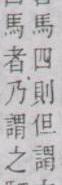 馬四則但謂
馬者乃謂之